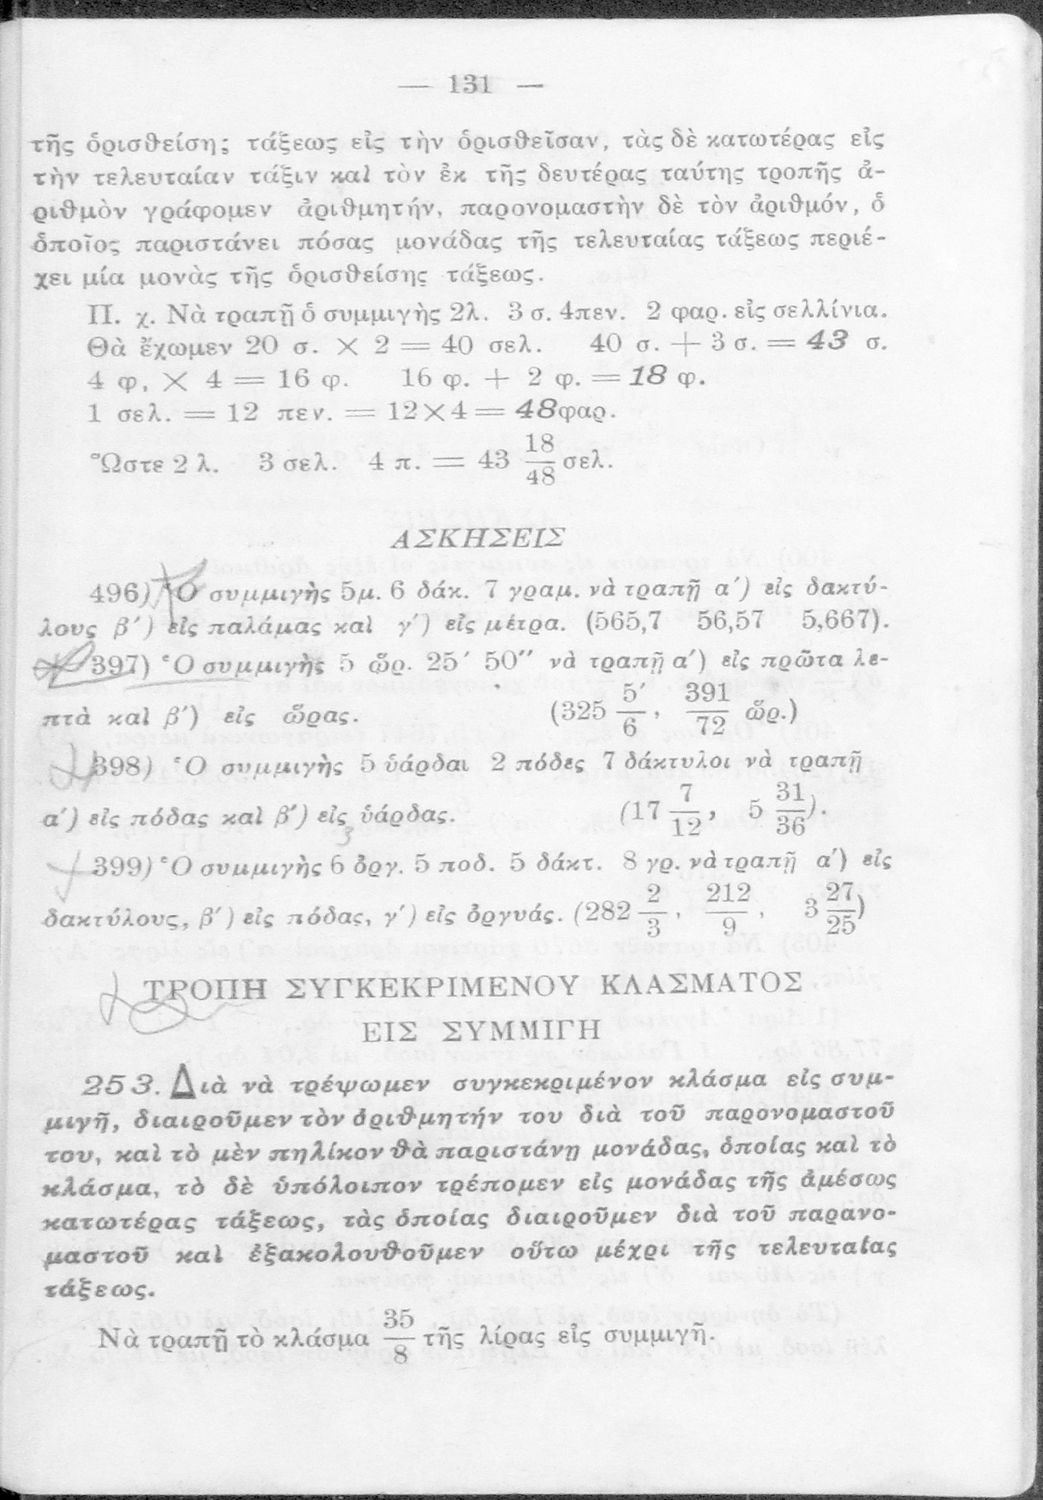 — 131 —
τῆς ὁρισθείση; τάξεως εἰς τὴν ὁρισθεῖσαν, τὰς δὲ κατωτέρας εἰς
τὴν τελευταίαν τάξιν καὶ τὸν ἐκ τῆς δευτέρας ταύτης τροπῆς ἀ-
ριθμὸν γράφομεν ἀριθμητήν, παρονομαστὴν δὲ τὸν ἀριθμόν, ὁ
ὁποῖος παριστάνει πόσας μονάδας τῆς τελευταίας τάξεως περιέ-
χει μία μονὰς τῆς ὁρισθείσης τάξεως.
Π. χ. Νὰ τραπῇ ὁ συμμιγὴς 2λ. 3 σ. 4πεν. 2 φαρ. εἰς σελλίνια.
Θὰ ἔχωμεν 20 σ. × 2 = 40 σελ. 40 σ. + 3 σ. = 43 σ.
4 φ, × 4 = 16 φ. 16 φ. + 2 φ. = 18 φ.
1 σελ. = 12 πεν. = 12×4 = 48φαρ.
Ὥστε 2 λ. 3 σελ. 4 π. = 43 18/48 σελ.
ΑΣΚΗΣΕΙΣ
496) Ὁ συμμιγὴς 5μ. 6 δάκ. 7 γραμ. νὰ τραπῇ α΄) εἰς δακτύ-
λους β΄) εἰς παλάμας καὶ γ΄) εἰς μέτρα. (565,7 56,57 5,667).
397) Ὁ συμμιγὴς 5 ὧρ. 25′ 50″ νὰ τραπῇ α΄) εἰς πρῶτα λε-
πτὰ καὶ β΄) εἰς ὥρας. (325 5′/6 , 391/72 ὧρ.)
398) Ὁ συμμιγὴς 5 ὑάρδαι 2 πόδες 7 δάκτυλοι νὰ τραπῇ
α΄) εἰς πόδας καὶ β΄) εἰς ὑάρδας. (17 7/12 , 5 31/36).
3
399) Ὁ συμμιγὴς 6 ὀργ. 5 ποδ. 5 δάκτ. 8 γρ. νὰ τραπῇ α΄) εἰς
δακτύλους, β΄) εἰς πόδας, γ΄) εἰς ὀργυάς. (282 2/3 , 212/9 , 3 27/25)
ΤΡΟΠΗ ΣΥΓΚΕΚΡΙΜΕΝΟΥ ΚΛΑΣΜΑΤΟΣ
ΕΙΣ ΣΥΜΜΙΓΗ
253. Διὰ νὰ τρέψωμεν συγκεκριμένον κλάσμα εἰς συμ-
μιγῆ, διαιροῦμεν τὸν ἀριθμητήν του διὰ τοῦ παρονομαστοῦ
του, καὶ τὸ μὲν πηλίκον θὰ παριστάνῃ μονάδας, ὁποίας καὶ τὸ
κλάσμα, τὸ δὲ ὑπόλοιπον τρέπομεν εἰς μονάδας τῆς ἀμέσως
κατωτέρας τάξεως, τὰς ὁποίας διαιροῦμεν διὰ τοῦ παρανο-
μαστοῦ καὶ ἐξακολουθοῦμεν οὕτω μέχρι τῆς τελευταίας
τάξεως.
Νὰ τραπῇ τὸ κλάσμα 35/8 τῆς λίρας εἰς συμμιγῆ.